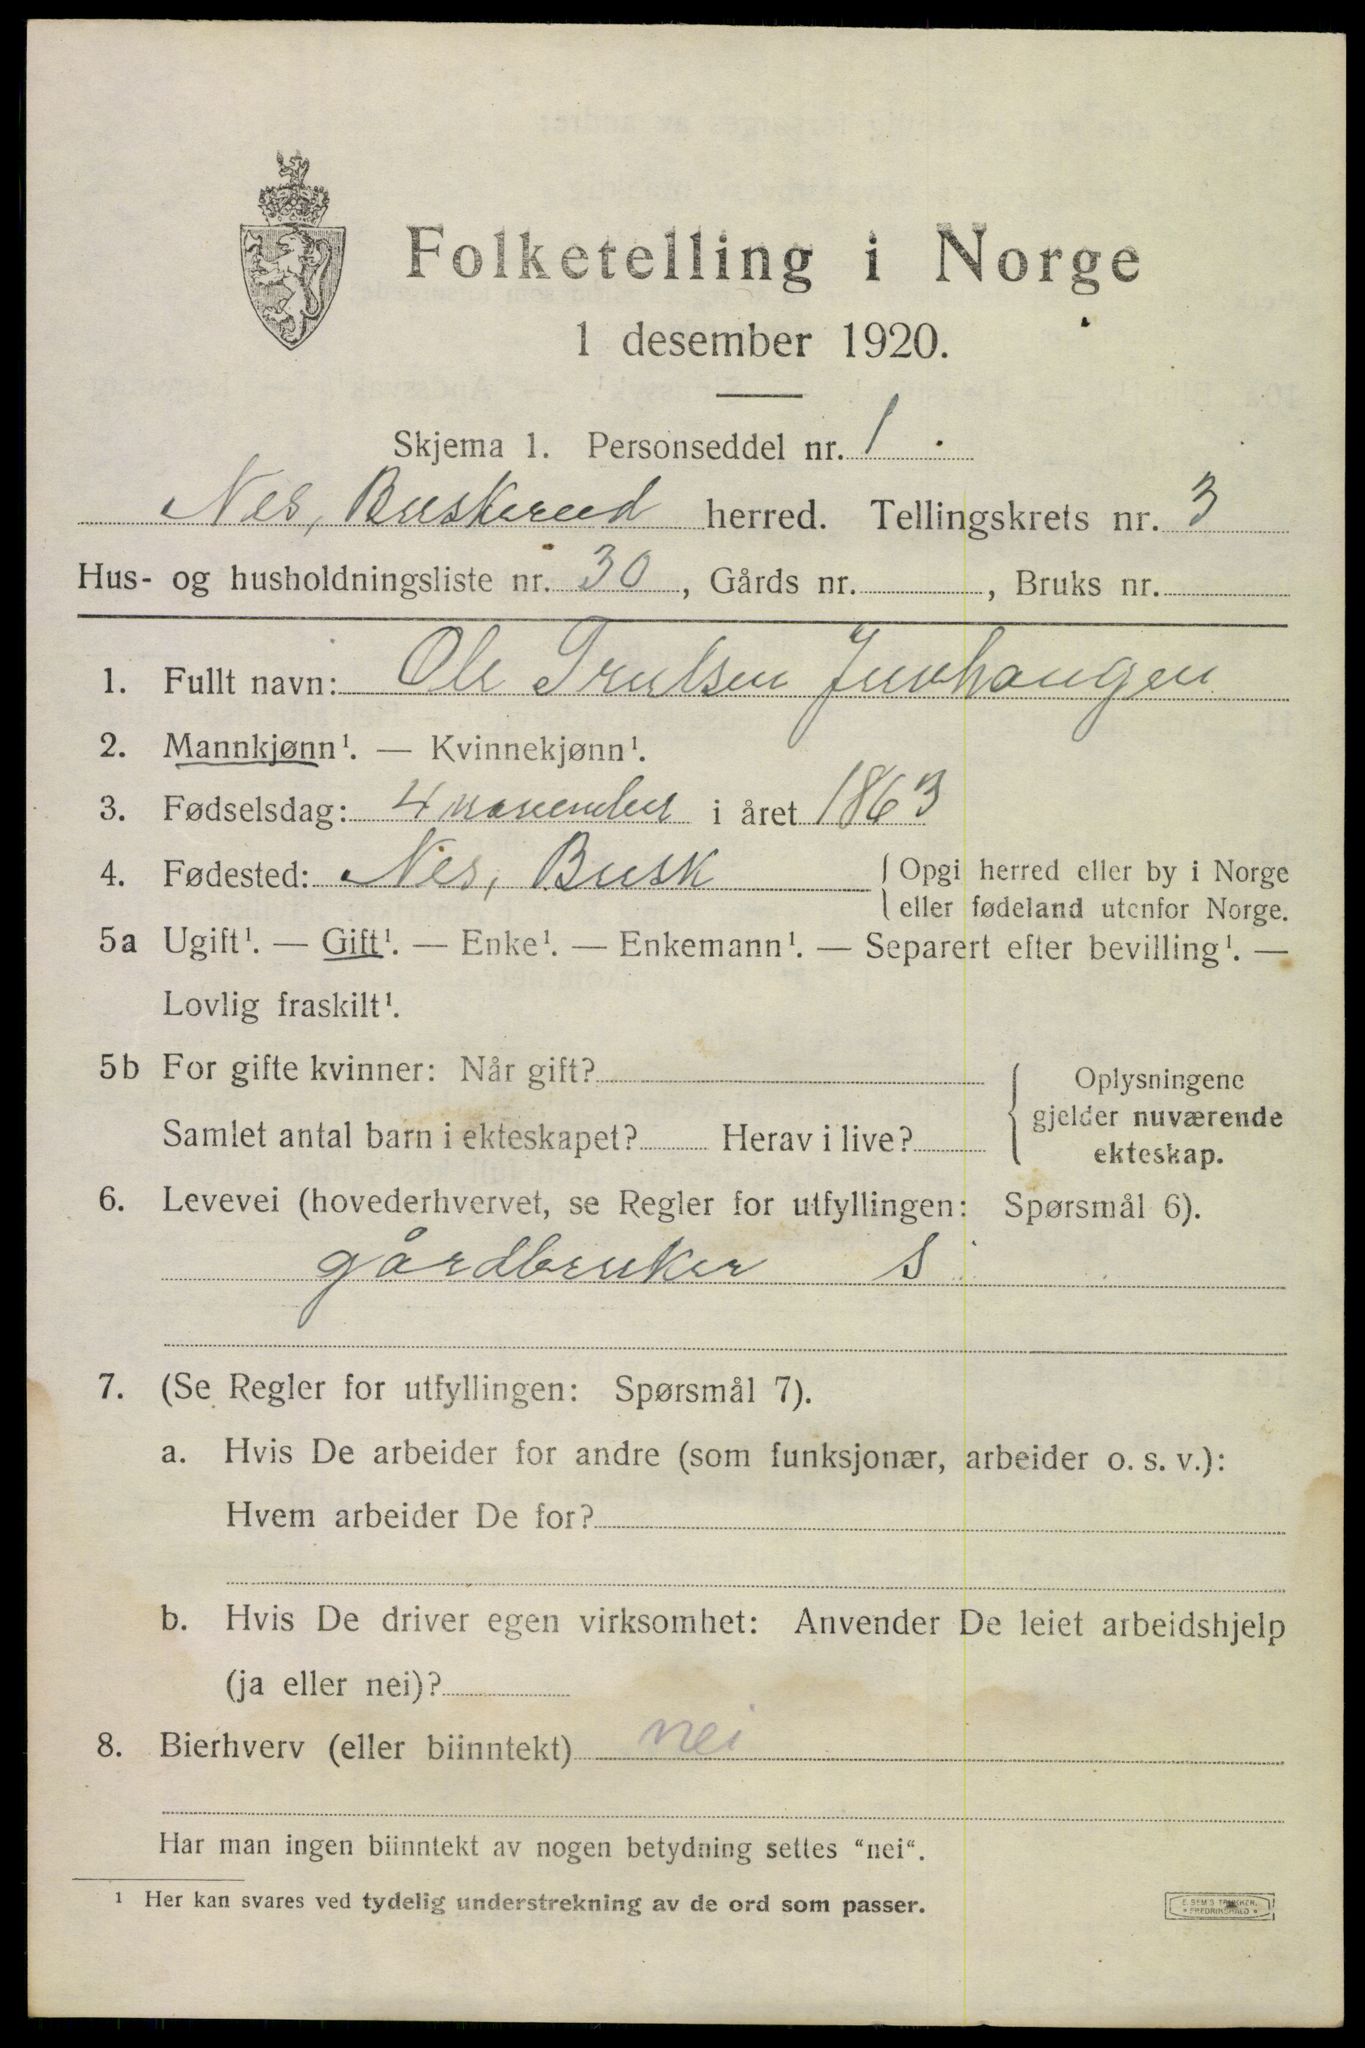 Folketelling i Norge
1 desember 1920.
Skjema 1. Personseddel nr. 1.
Nes, Buskerud herred. Tellingskrets nr. 3
Hus- og husholdningsliste nr. 30, Gårds nr. , Bruks nr.
1. Fullt navn: Ole Trulsen Juvhaugen
2. Mannkjønn¹. — Kvinnekjønn¹.
3. Fødselsdag: 4 november i året 1863
4. Fødested: Nes, Busk { Opgi herred eller by i Norge
eller fødeland utenfor Norge.
5a Ugift¹. — Gift¹. — Enke¹. — Enkemann¹. — Separert efter bevilling¹. —
Lovlig fraskilt¹.
5b For gifte kvinner: Når gift?
Samlet antal barn i ekteskapet? Herav i live?
{ Oplysningene
gjelder nuværende
ekteskap.
6. Levevei (hovederhvervet, se Regler for utfyllingen: Spørsmål 6).
gårdbruker S
7. (Se Regler for utfyllingen: Spørsmål 7).
a. Hvis De arbeider for andre (som funksjonær, arbeider o. s. v.):
Hvem arbeider De for?
b. Hvis De driver egen virksomhet: Anvender De leiet arbeidshjelp
(ja eller nei)?
8. Bierhverv (eller biinntekt) nei
Har man ingen biinntekt av nogen betydning settes "nei".
¹ Her kan svares ved tydelig understrekning av de ord som passer.
E. SEM'S TRYKKERI,
FREDRIKSHALD